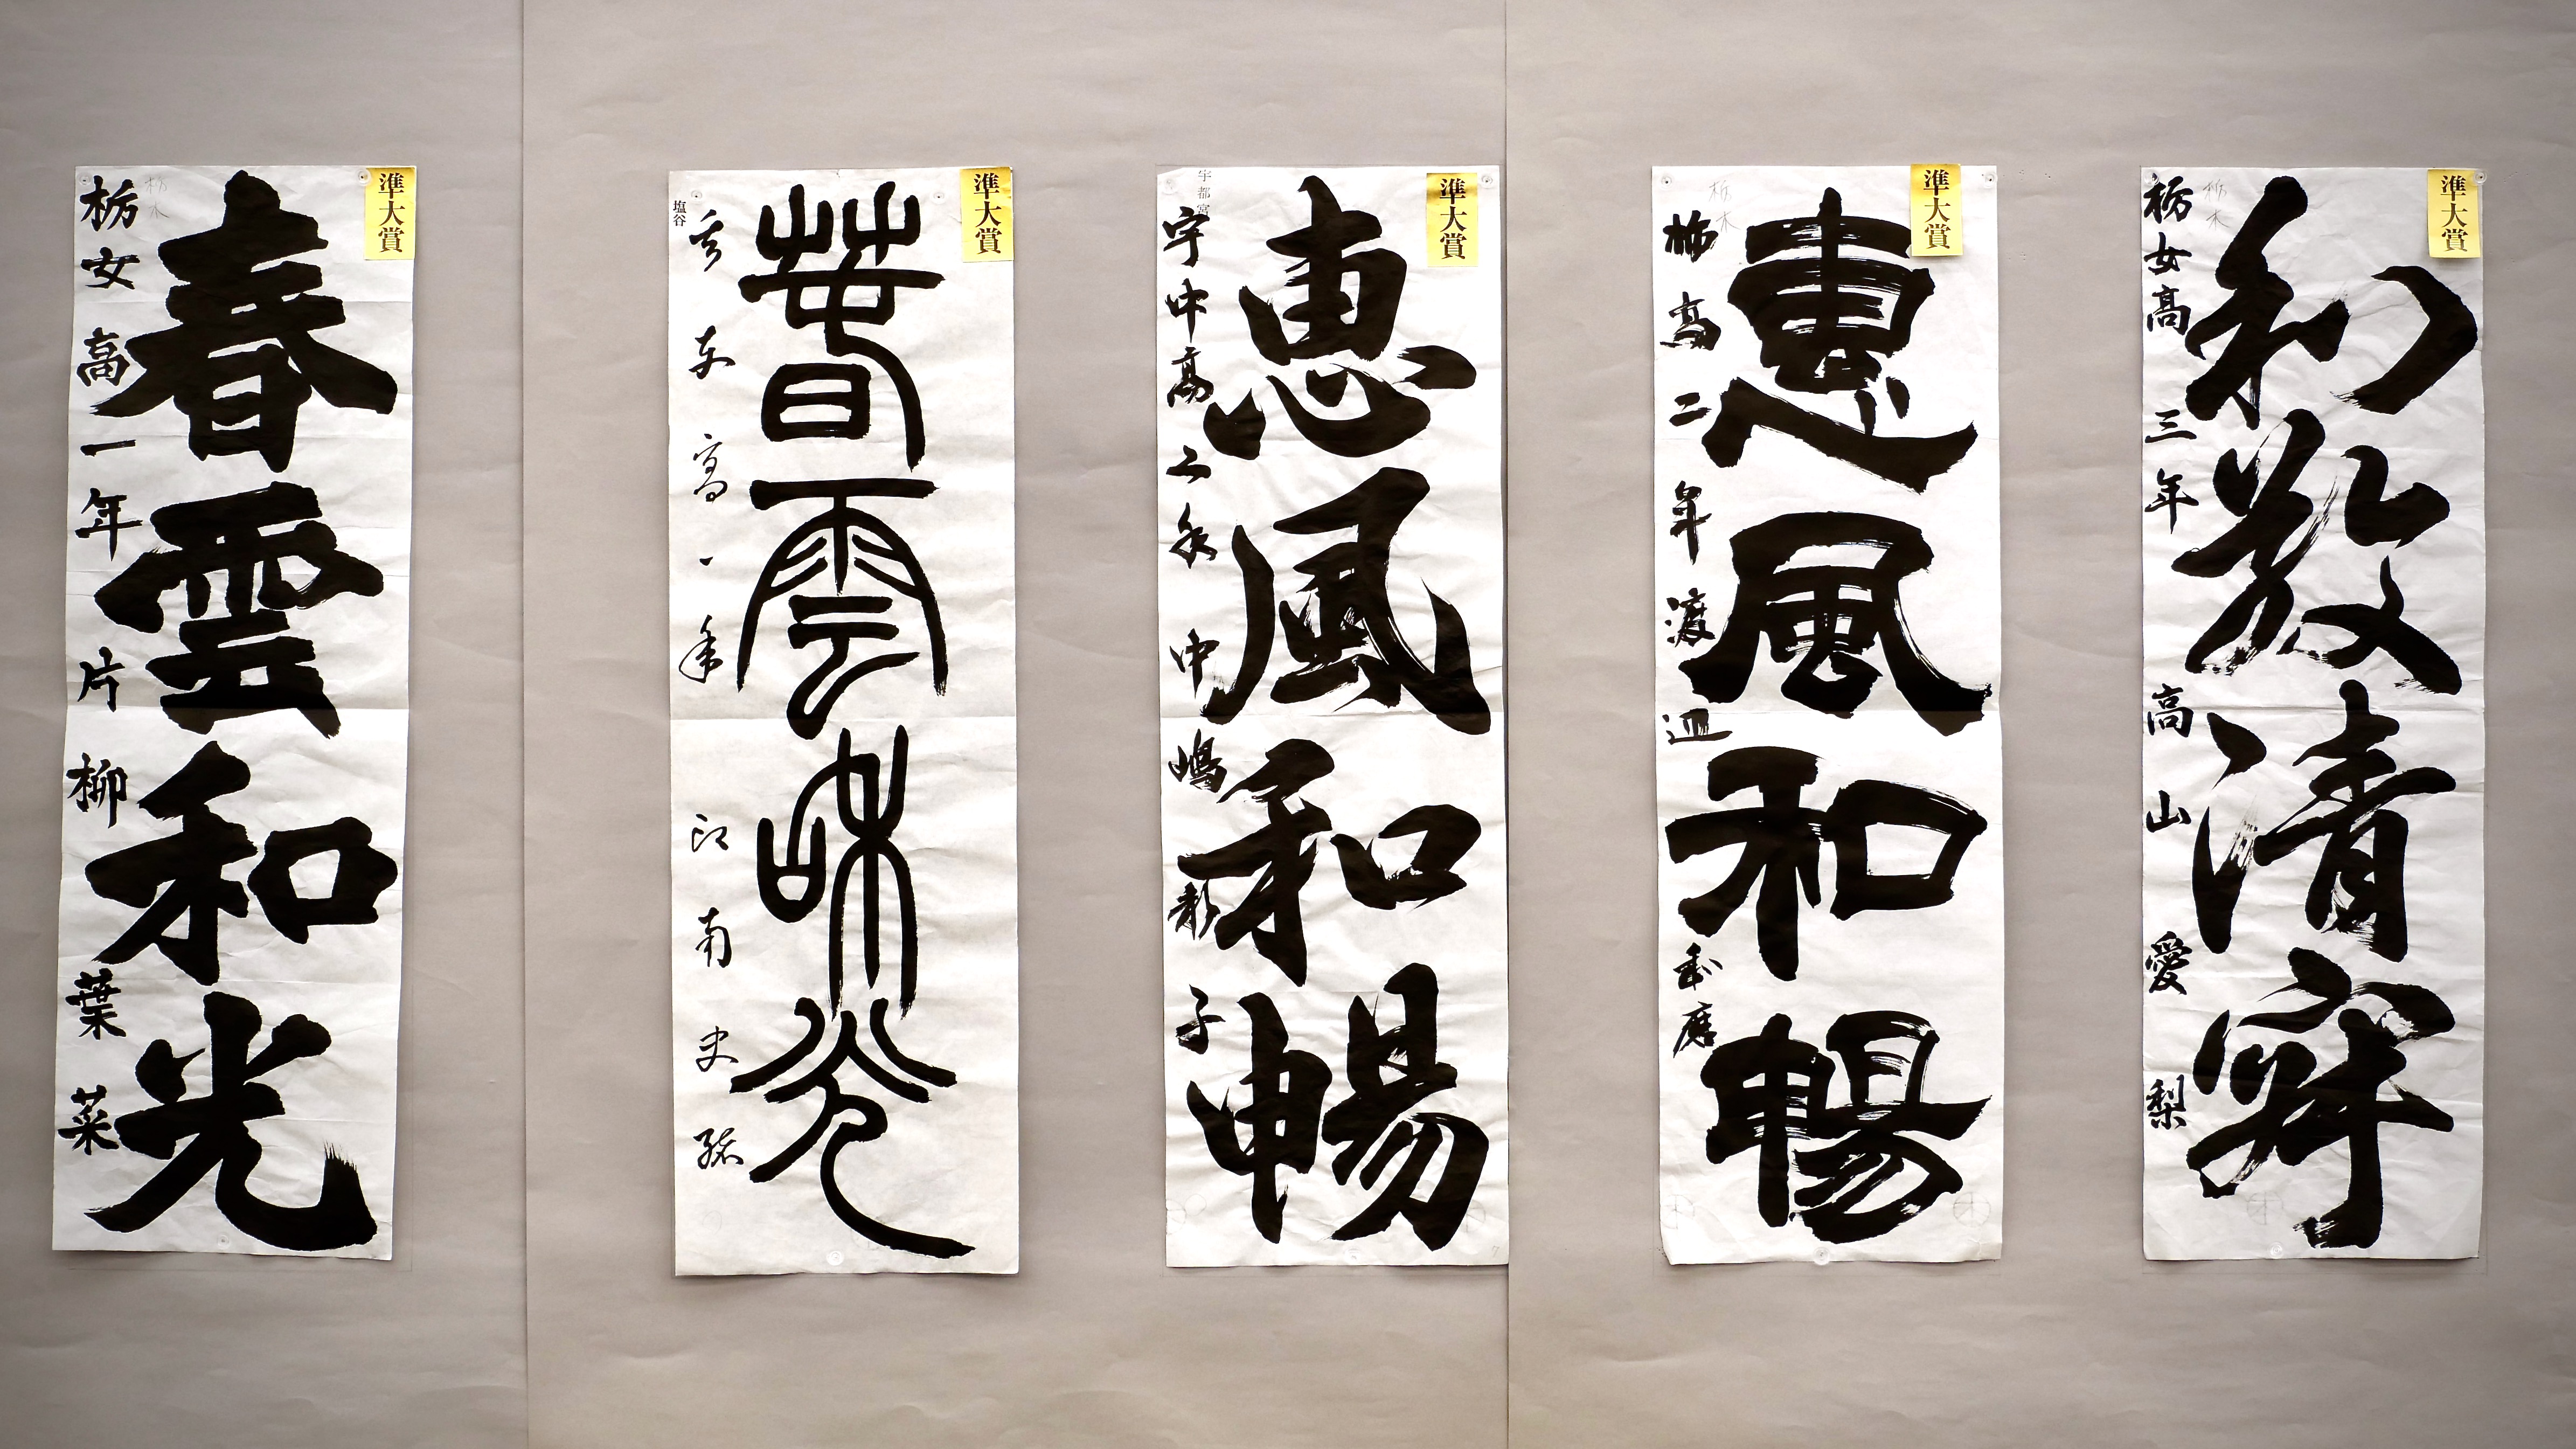 準大賞
和敬清寂
栃女高三年 高山愛梨
栃木
準大賞
惠風和暢
栃高二年
栃木
準大賞
恵風和暢
宇中高二年 中嶋 子
宇都宮
準大賞
春雲和光
矢東高一年 江南史
塩谷
準大賞
春雲和光
栃女高一年 片柳葉菜
栃木